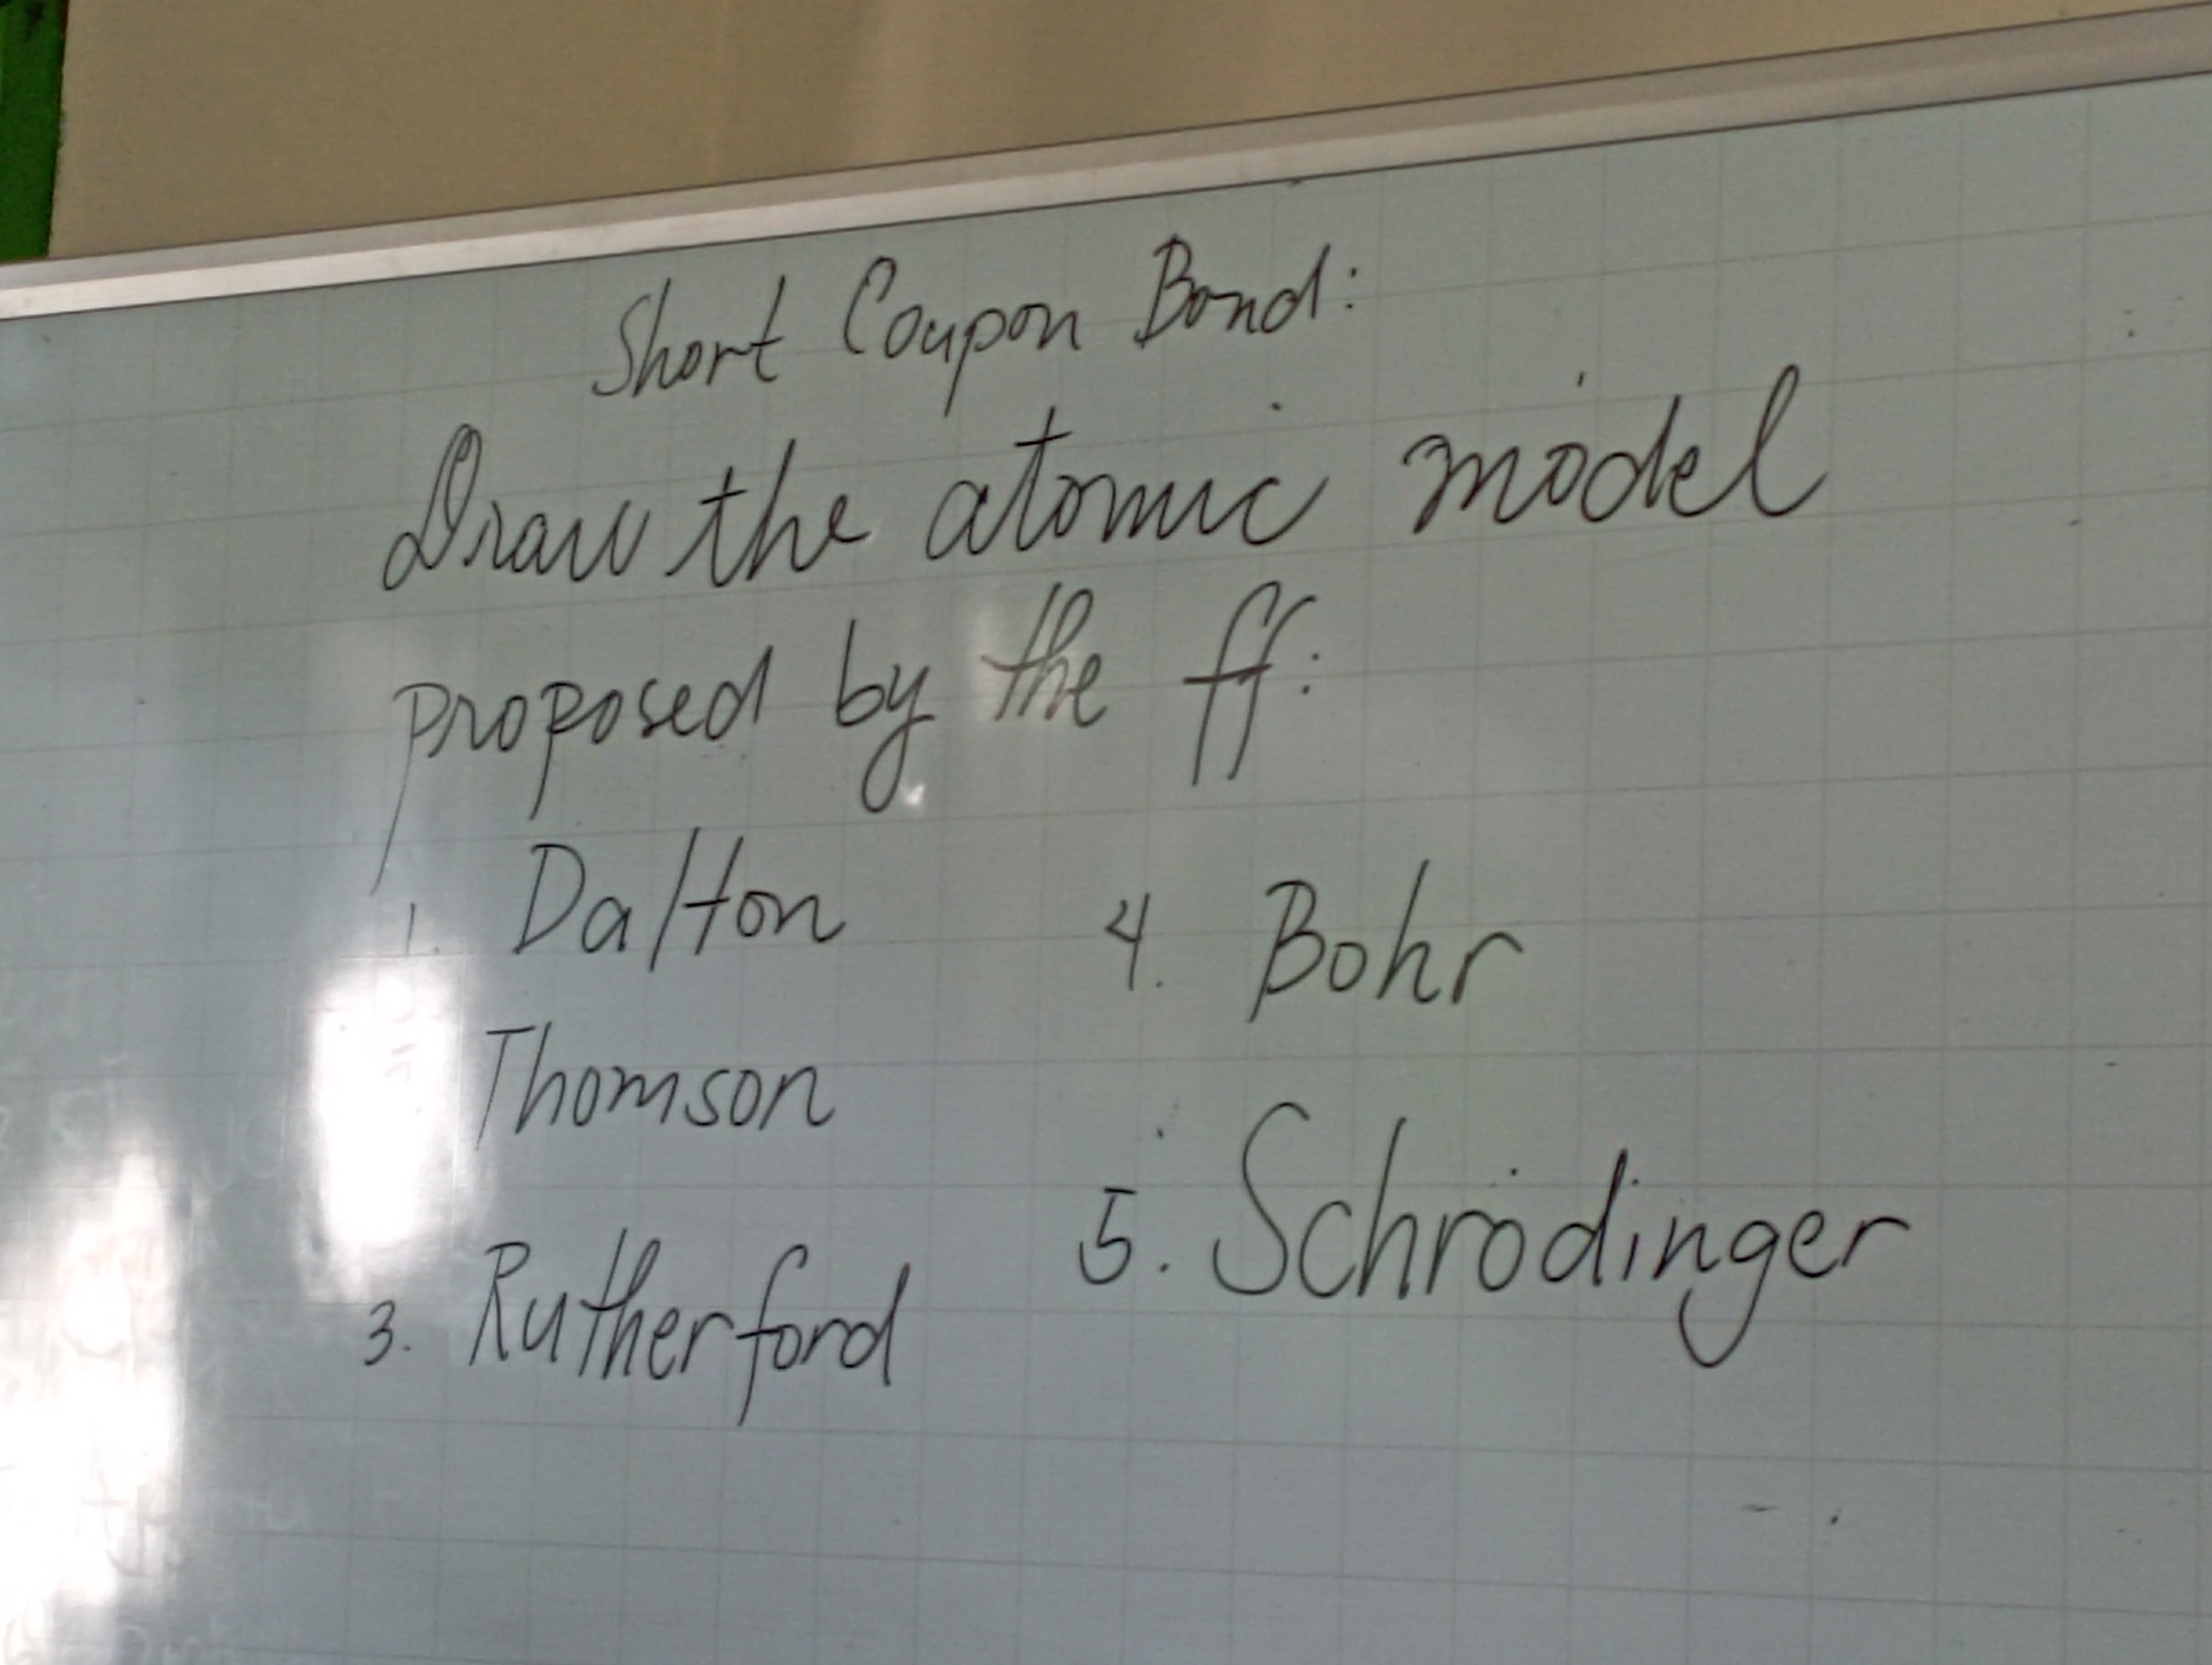 Short Coupon Bond:
Draw the atomic model
proposed by the ff:
1. Dalton
Thomson
3. Rutherford
4. Bohr
5. Schrödinger